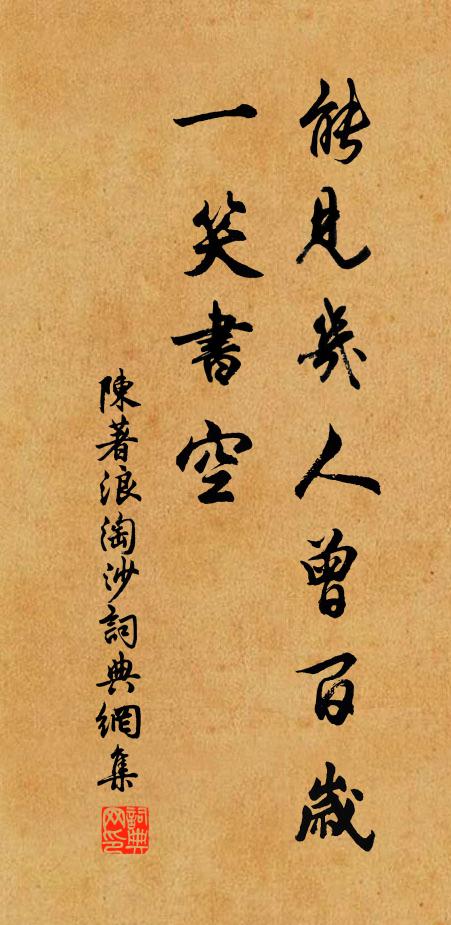 能見幾人曾百歲
一笑書空
陳著浪淘沙詞典網集
詞典网印